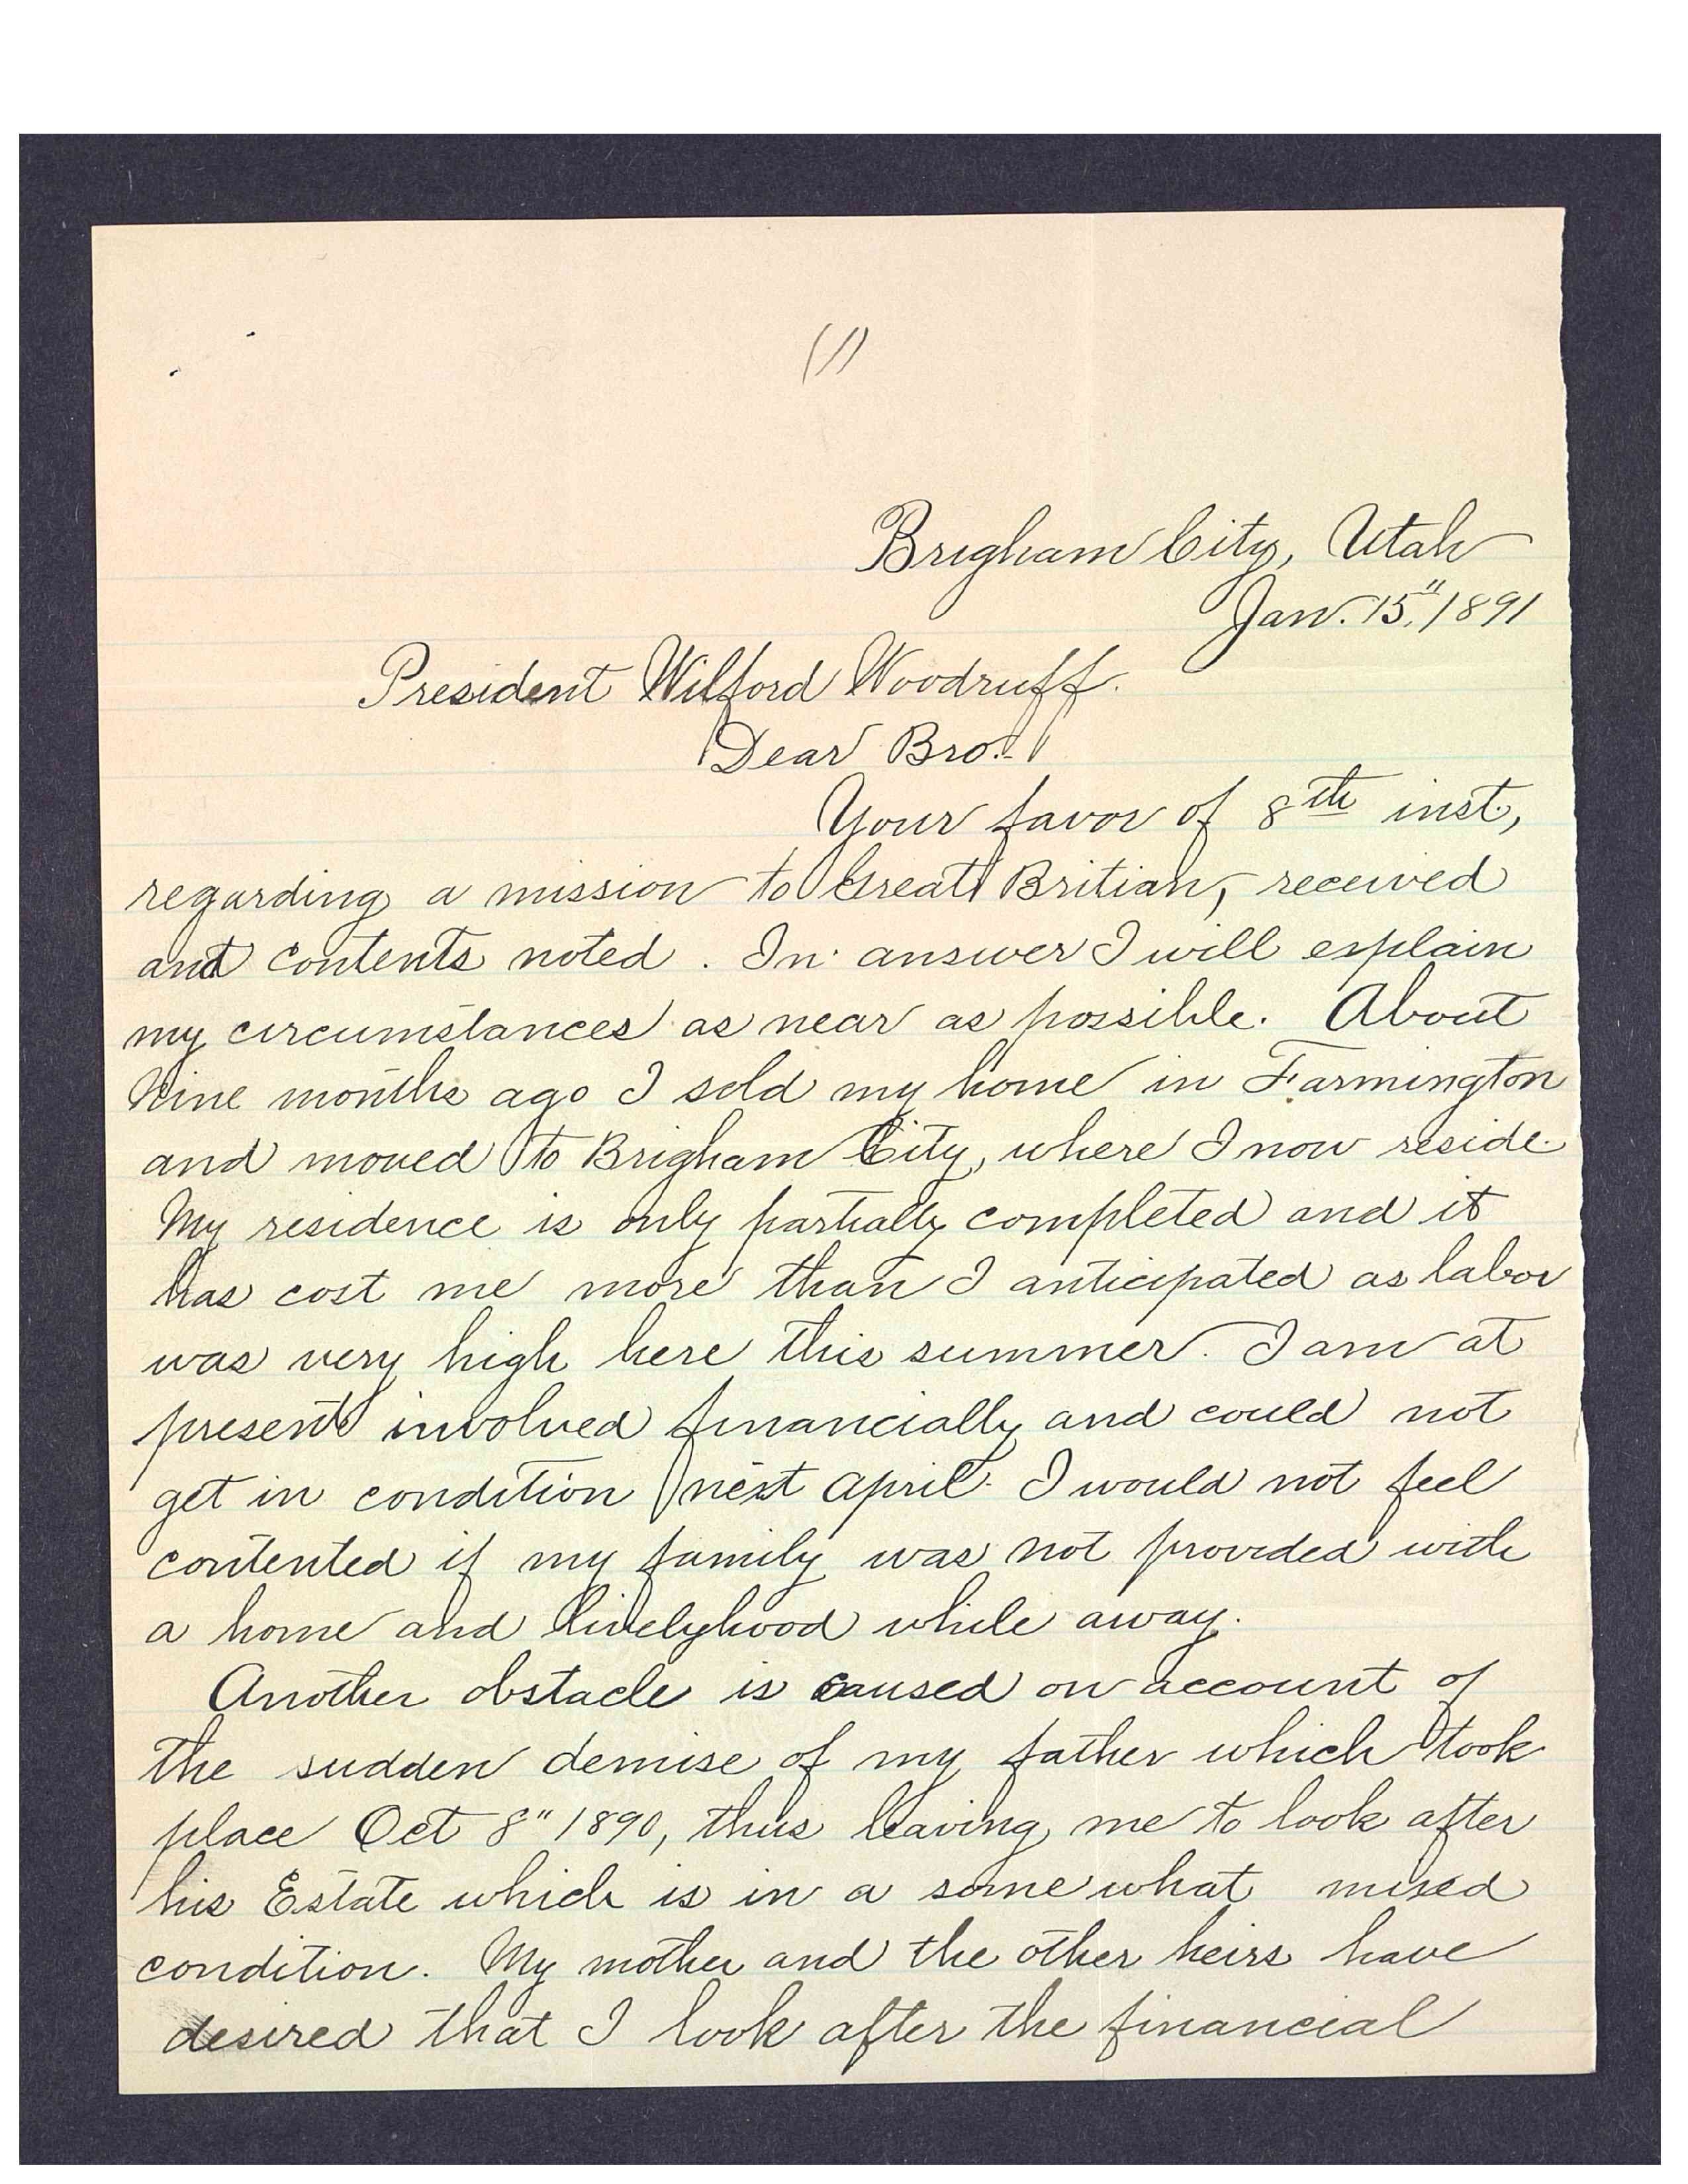 (1)
Brigham City, Utah
Jan. 15," 1891
President Wilford Woodruff.
Dear Bro.
Your favor of 8th inst,
regarding a mission to Great Britian, received
and contents noted. In answer I will explain
my circumstances as near as possible. About
Nine months ago I sold my home in Farmington
and moved to Brigham City, where I now reside.
My residence is only partially completed and it
has cost me more than I anticipated as labor
was very high here this summer. I am at
present involved financially and could not
get in condition next April. I would not feel
contented if my family was not provided with
a home and livelyhood while away.
Another obstacle is caused on account of
the sudden demise of my father which took
place Oct 8" 1890, thus leaving me to look after
his Estate which is in a somewhat mixed
condition. My mother and the other heirs have
desired that I look after the financial